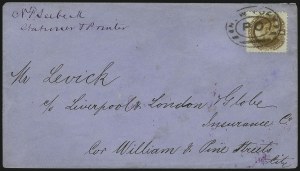 N F Seebeck
Stationer & Printer
Mr Levick
c/o Liverpool & London & Globe
Insurance Co
Cor William & Pine Streets
City